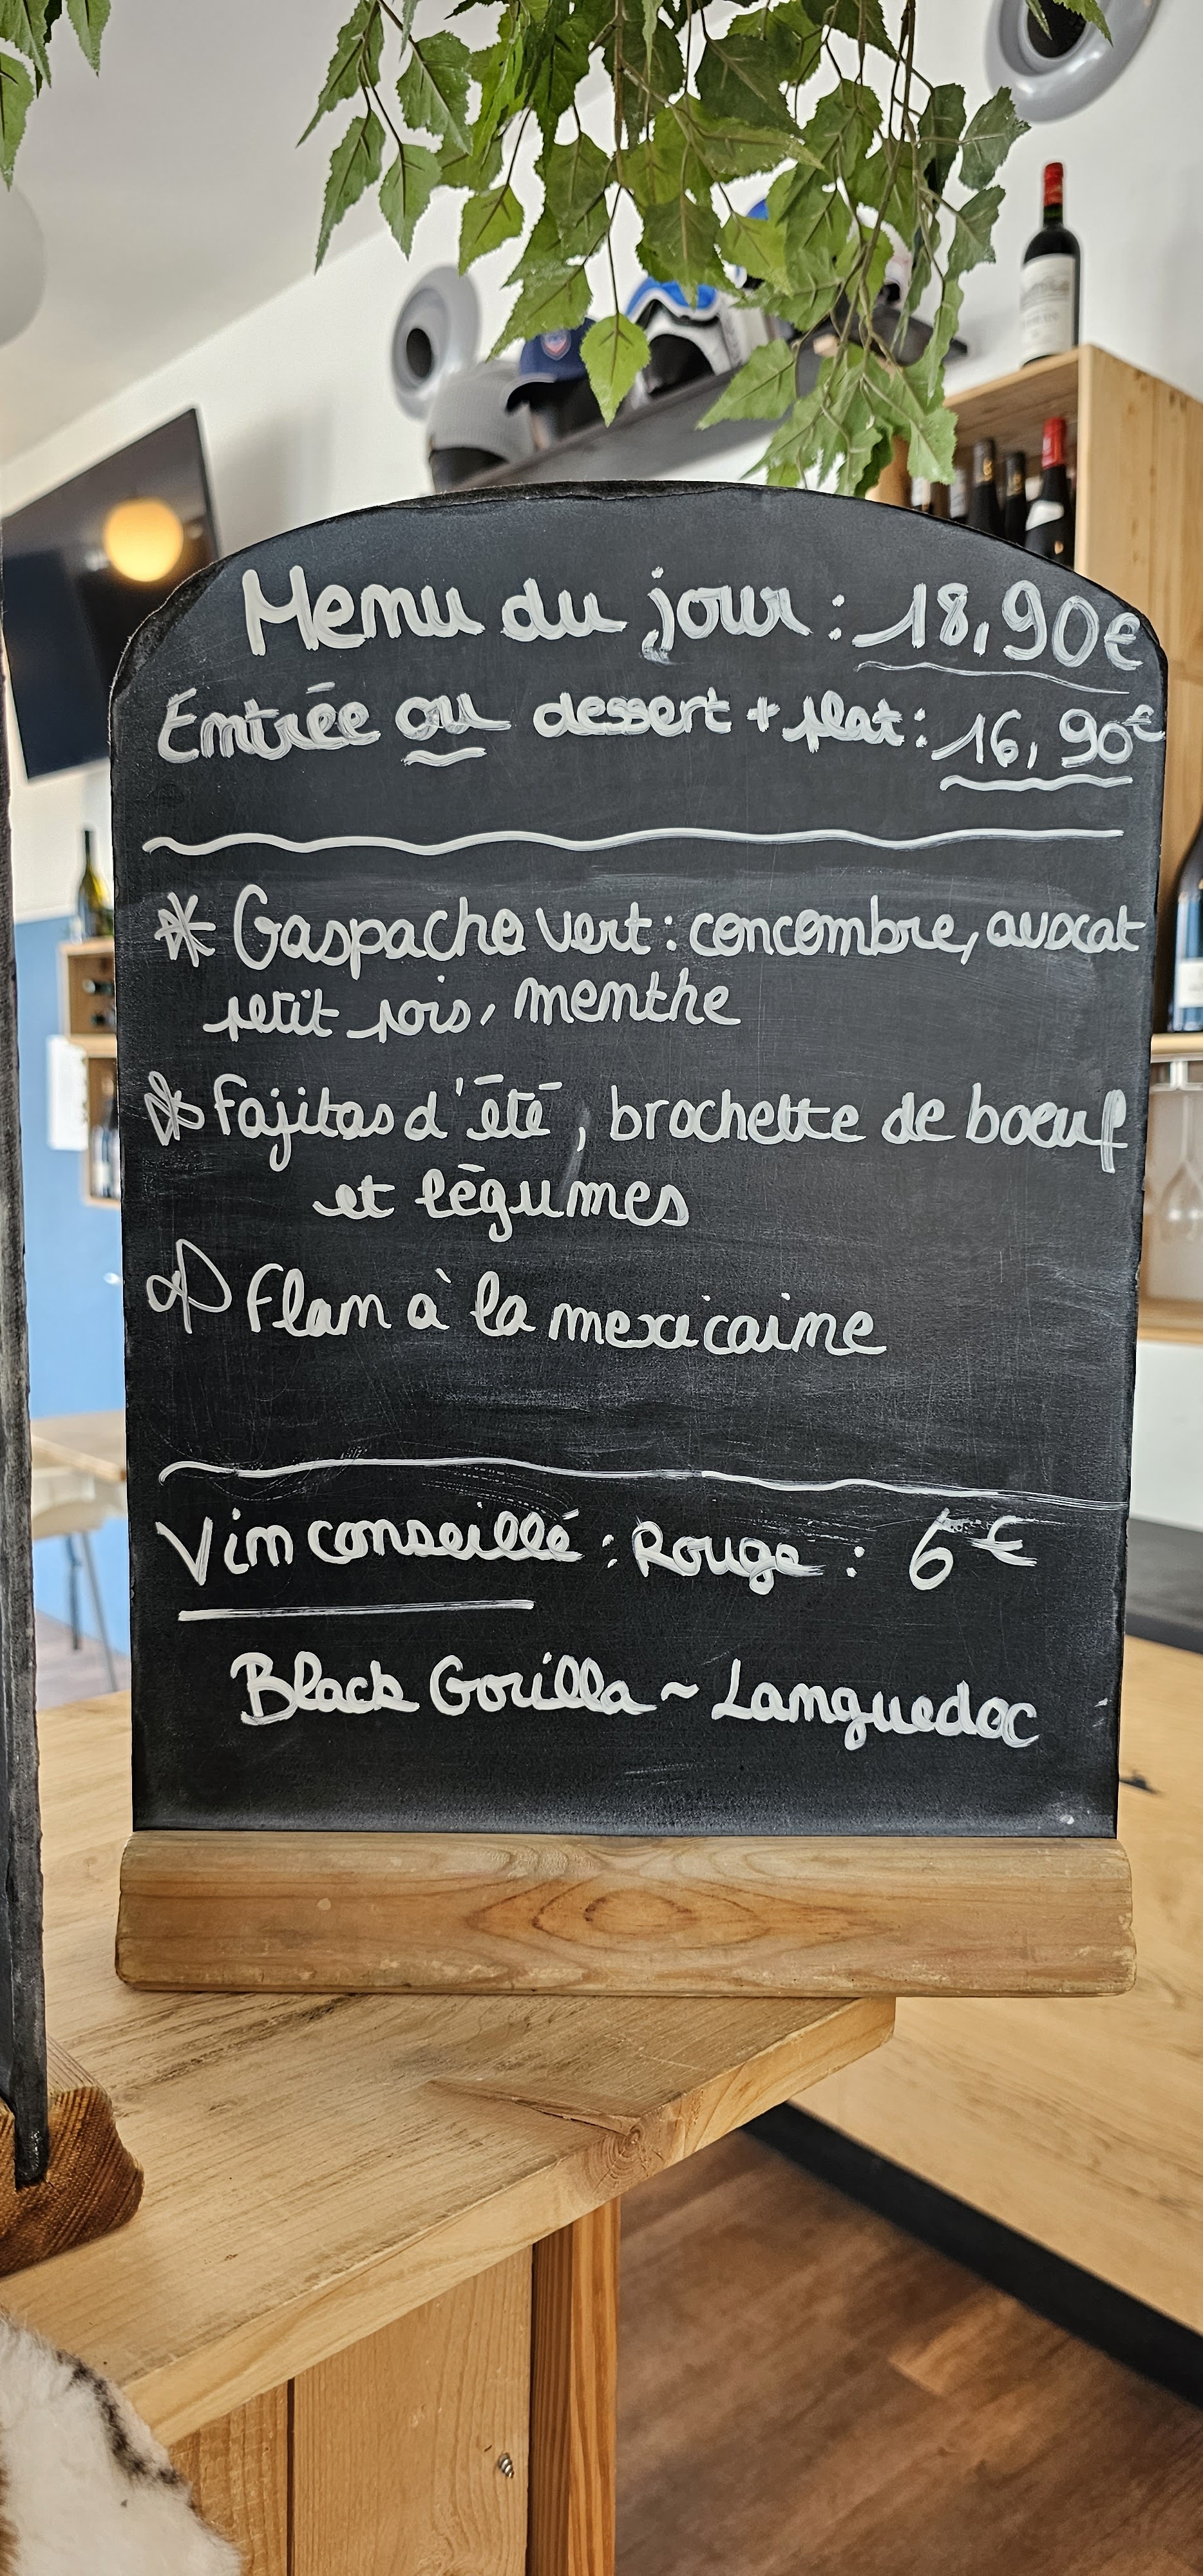 Menu du jour : 18,90€
Entrée ou dessert + plat : 16,90€
* Gaspacho vert : concombre, avocat
petit pois, menthe
* Fajitas d'été, brochette de boeuf
et légumes
* Flan à la mexicaine
Vin conseillé : Rouge : 6€
Black Gorilla ~ Languedoc